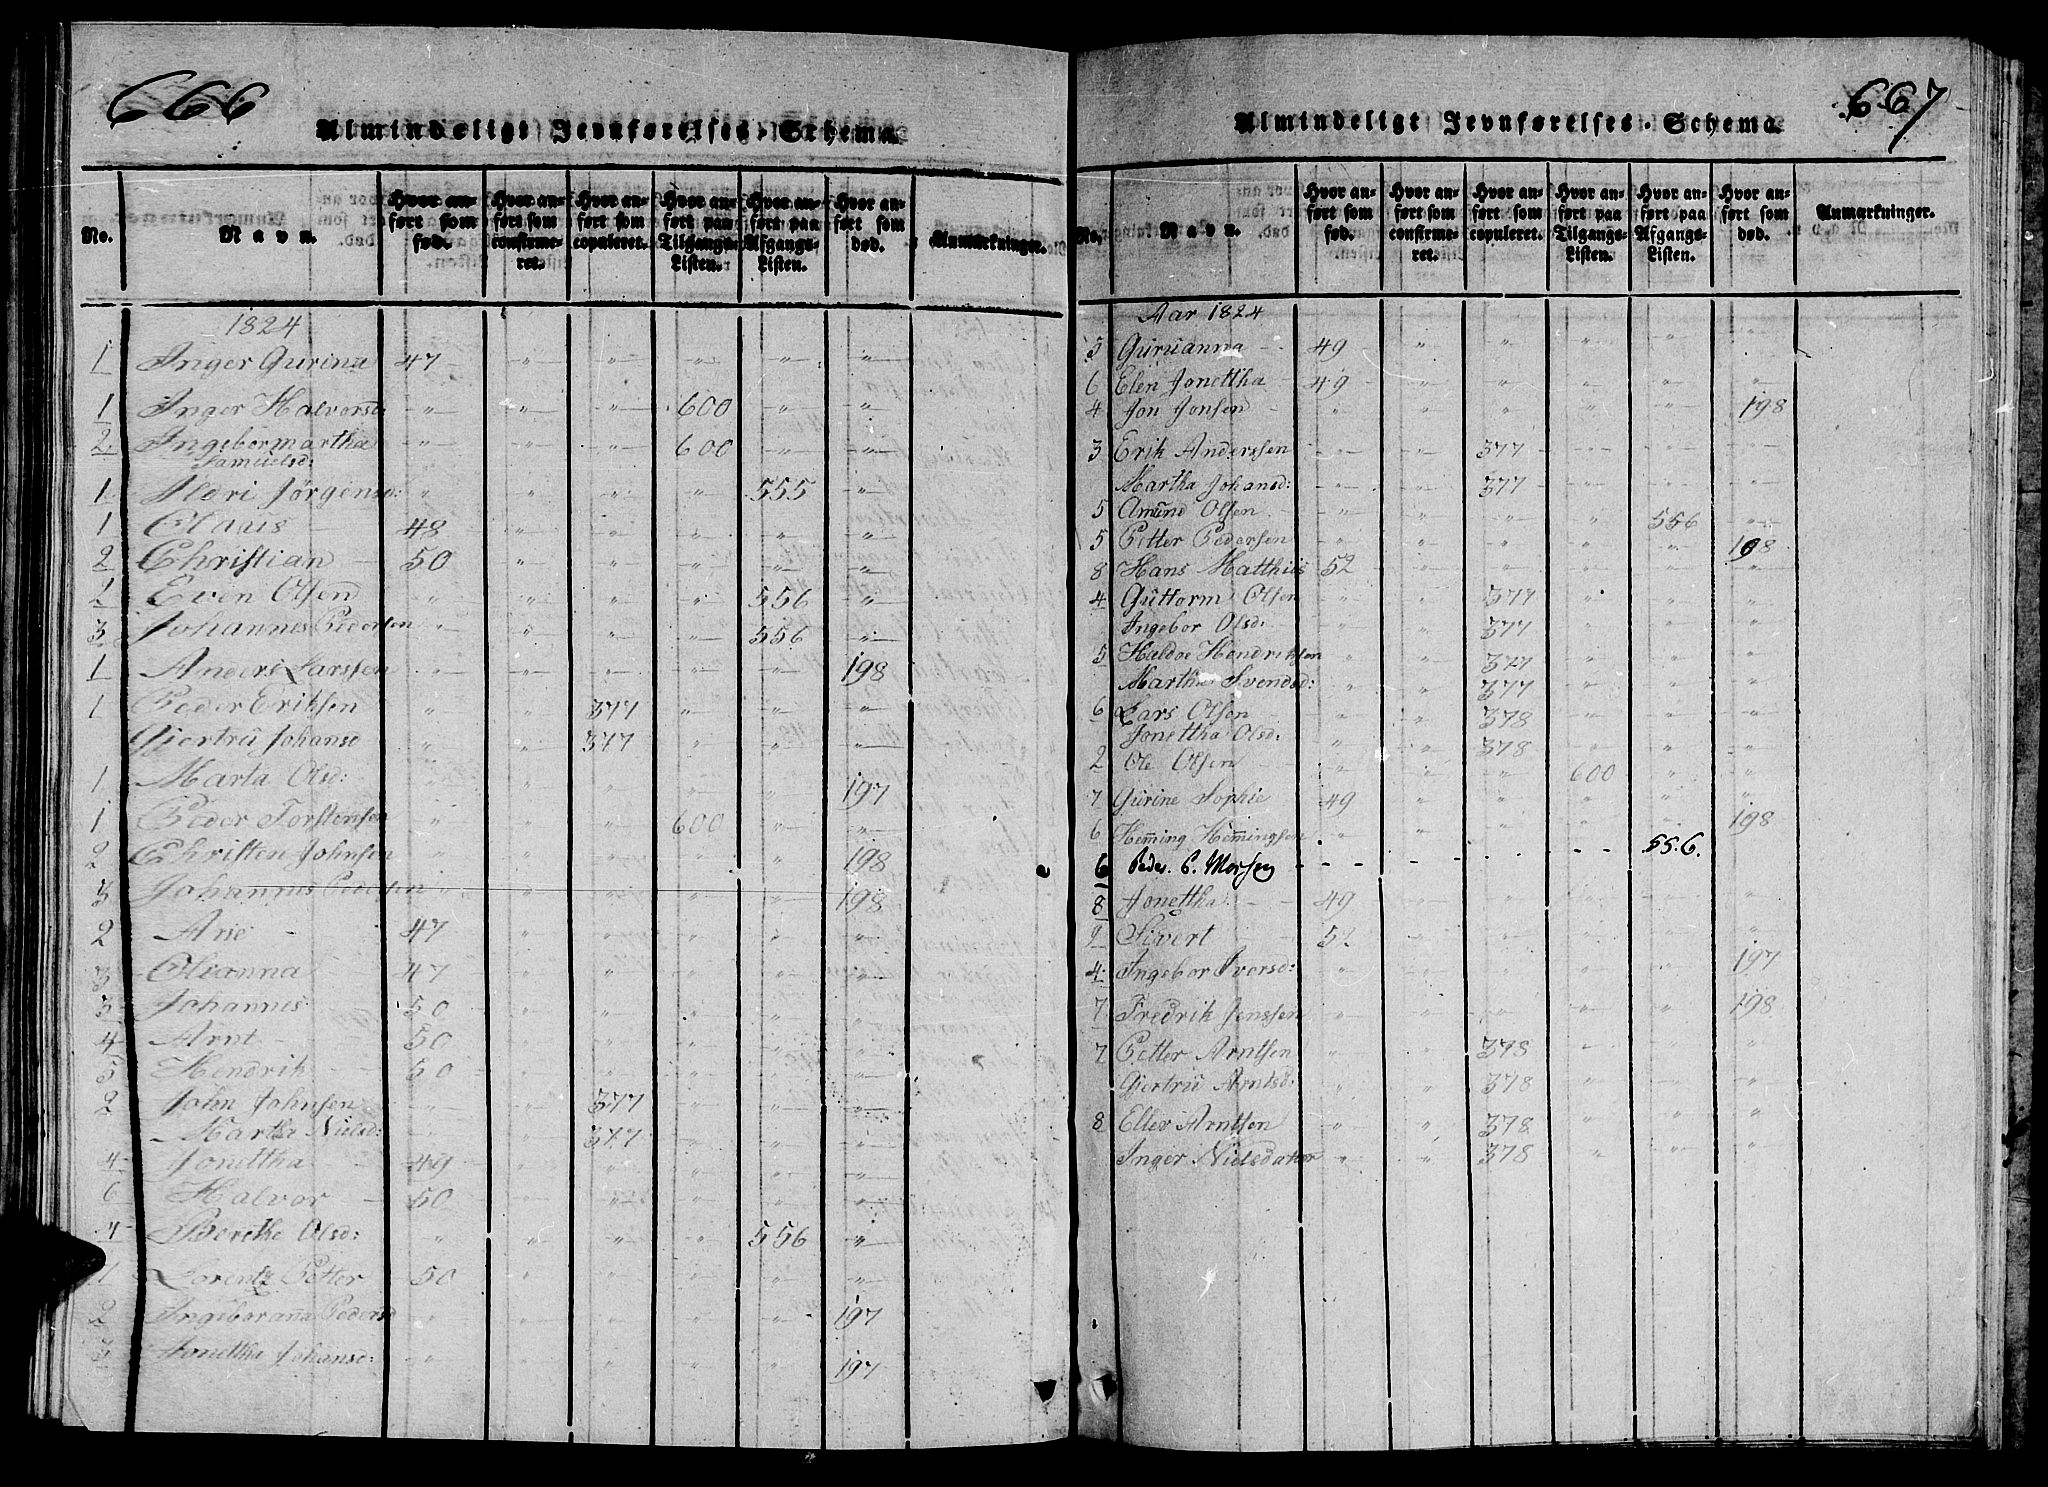 666
Almindeligt Jevnførelses-Schema.
No.
Navn.
Hvor anført som fød.
Hvor anført som confirmeret.
Hvor anført som copuleret.
Hvor anført paa Tilgangs-Listen.
Hvor anført paa Afgangs-Listen.
Hvor anført som død.
Anmærkninger.
1824
1 Inger Gurina 47 " " " " "
1 Inger Halvorsd " " " 600 " "
2 Ingebormartha Samuelsd: " " " 600 " "
1 Ildri Jørgensd: " " " " 555 "
1 Claus 48 " " " " "
2 Christian 50 " " " " "
1 Even Olsen " " " " 556 "
3 Johannes Pedersen " " " " 556 "
1 Anders Larssen " " " " " 198
1 Peder Eriksen " " 377 " " "
Gjertru Johansd " " 377 " " "
1 Marta Olsd: " " " " " 197
1 Peder Torstensen " " " 600 " "
2 Christen Johnsen " " " " " 198
3 Johannes Pedersen " " " " " 198
2 Ane 47 " " " " "
3 Olianna 47 " " " " "
3 Johannes 50 " " " " "
4 Arnt 50 " " " " "
5 Hendrik 50 " " " " "
2 John Johnsen " " 377 " " "
Martha Nielsd: " " 377 " " "
4 Jonettha 49 " " " " "
6 Halvor 50 " " " " "
4 Berethe Olsd: " " " " 556 "
Lorentz Petter 50 " " " " "
2 Ingeborana Pedersd " " " " " 197
3 Jonettha Johansd: " " " " " 197
667
Almindeligt Jevnførelses-Schema.
No.
Navn.
Hvor anført som fød.
Hvor anført som confirmeret.
Hvor anført som copuleret.
Hvor anført paa Tilgangs-Listen.
Hvor anført paa Afgangs-Listen.
Hvor anført som død.
Anmærkninger.
Aar 1824
5 Guruanna 49 " " " " "
6 Elen Jonettha 49 " " " " "
4 Jon Jonsen " " " " " 198
3 Erik Anderssen " " 377 " " "
Martha Johansd: " " 377 " " "
5 Amund Olsen " " " " 556 "
5 Petter Pedersen " " " " " 198
8 Hans Matthias 52 " " " " "
4 Guttorm Olsen " " 377 " " "
Ingebor Olsd: " " 377 " " "
5 Haldoe Hendriksen " " 377 " " "
Martha Svendsd: " " 377 " " "
6 Lars Olsen " " 378 " " "
Jonettha Olsd: " " 378 " " "
2 Ole Olsen " " " 600 " "
7 Gurine Sophie 49 " " " " "
6 Hemming Hemmingsen " " " " " 198
6 Peder P. Morsen - - - - 556.
8 Jonettha 49 " " " " "
9 Sivert 52 " " " " "
4 Ingebor Iversd: " " " " " 197
7 Fredrik Jenssen " " " " " 198
7 Petter Arntsen " " 378 " " "
Gjertru Arntsd: " " 378 " " "
8 Eller Arntsen " " 378 " " "
Inger Nielsdatter " " 378 " " "